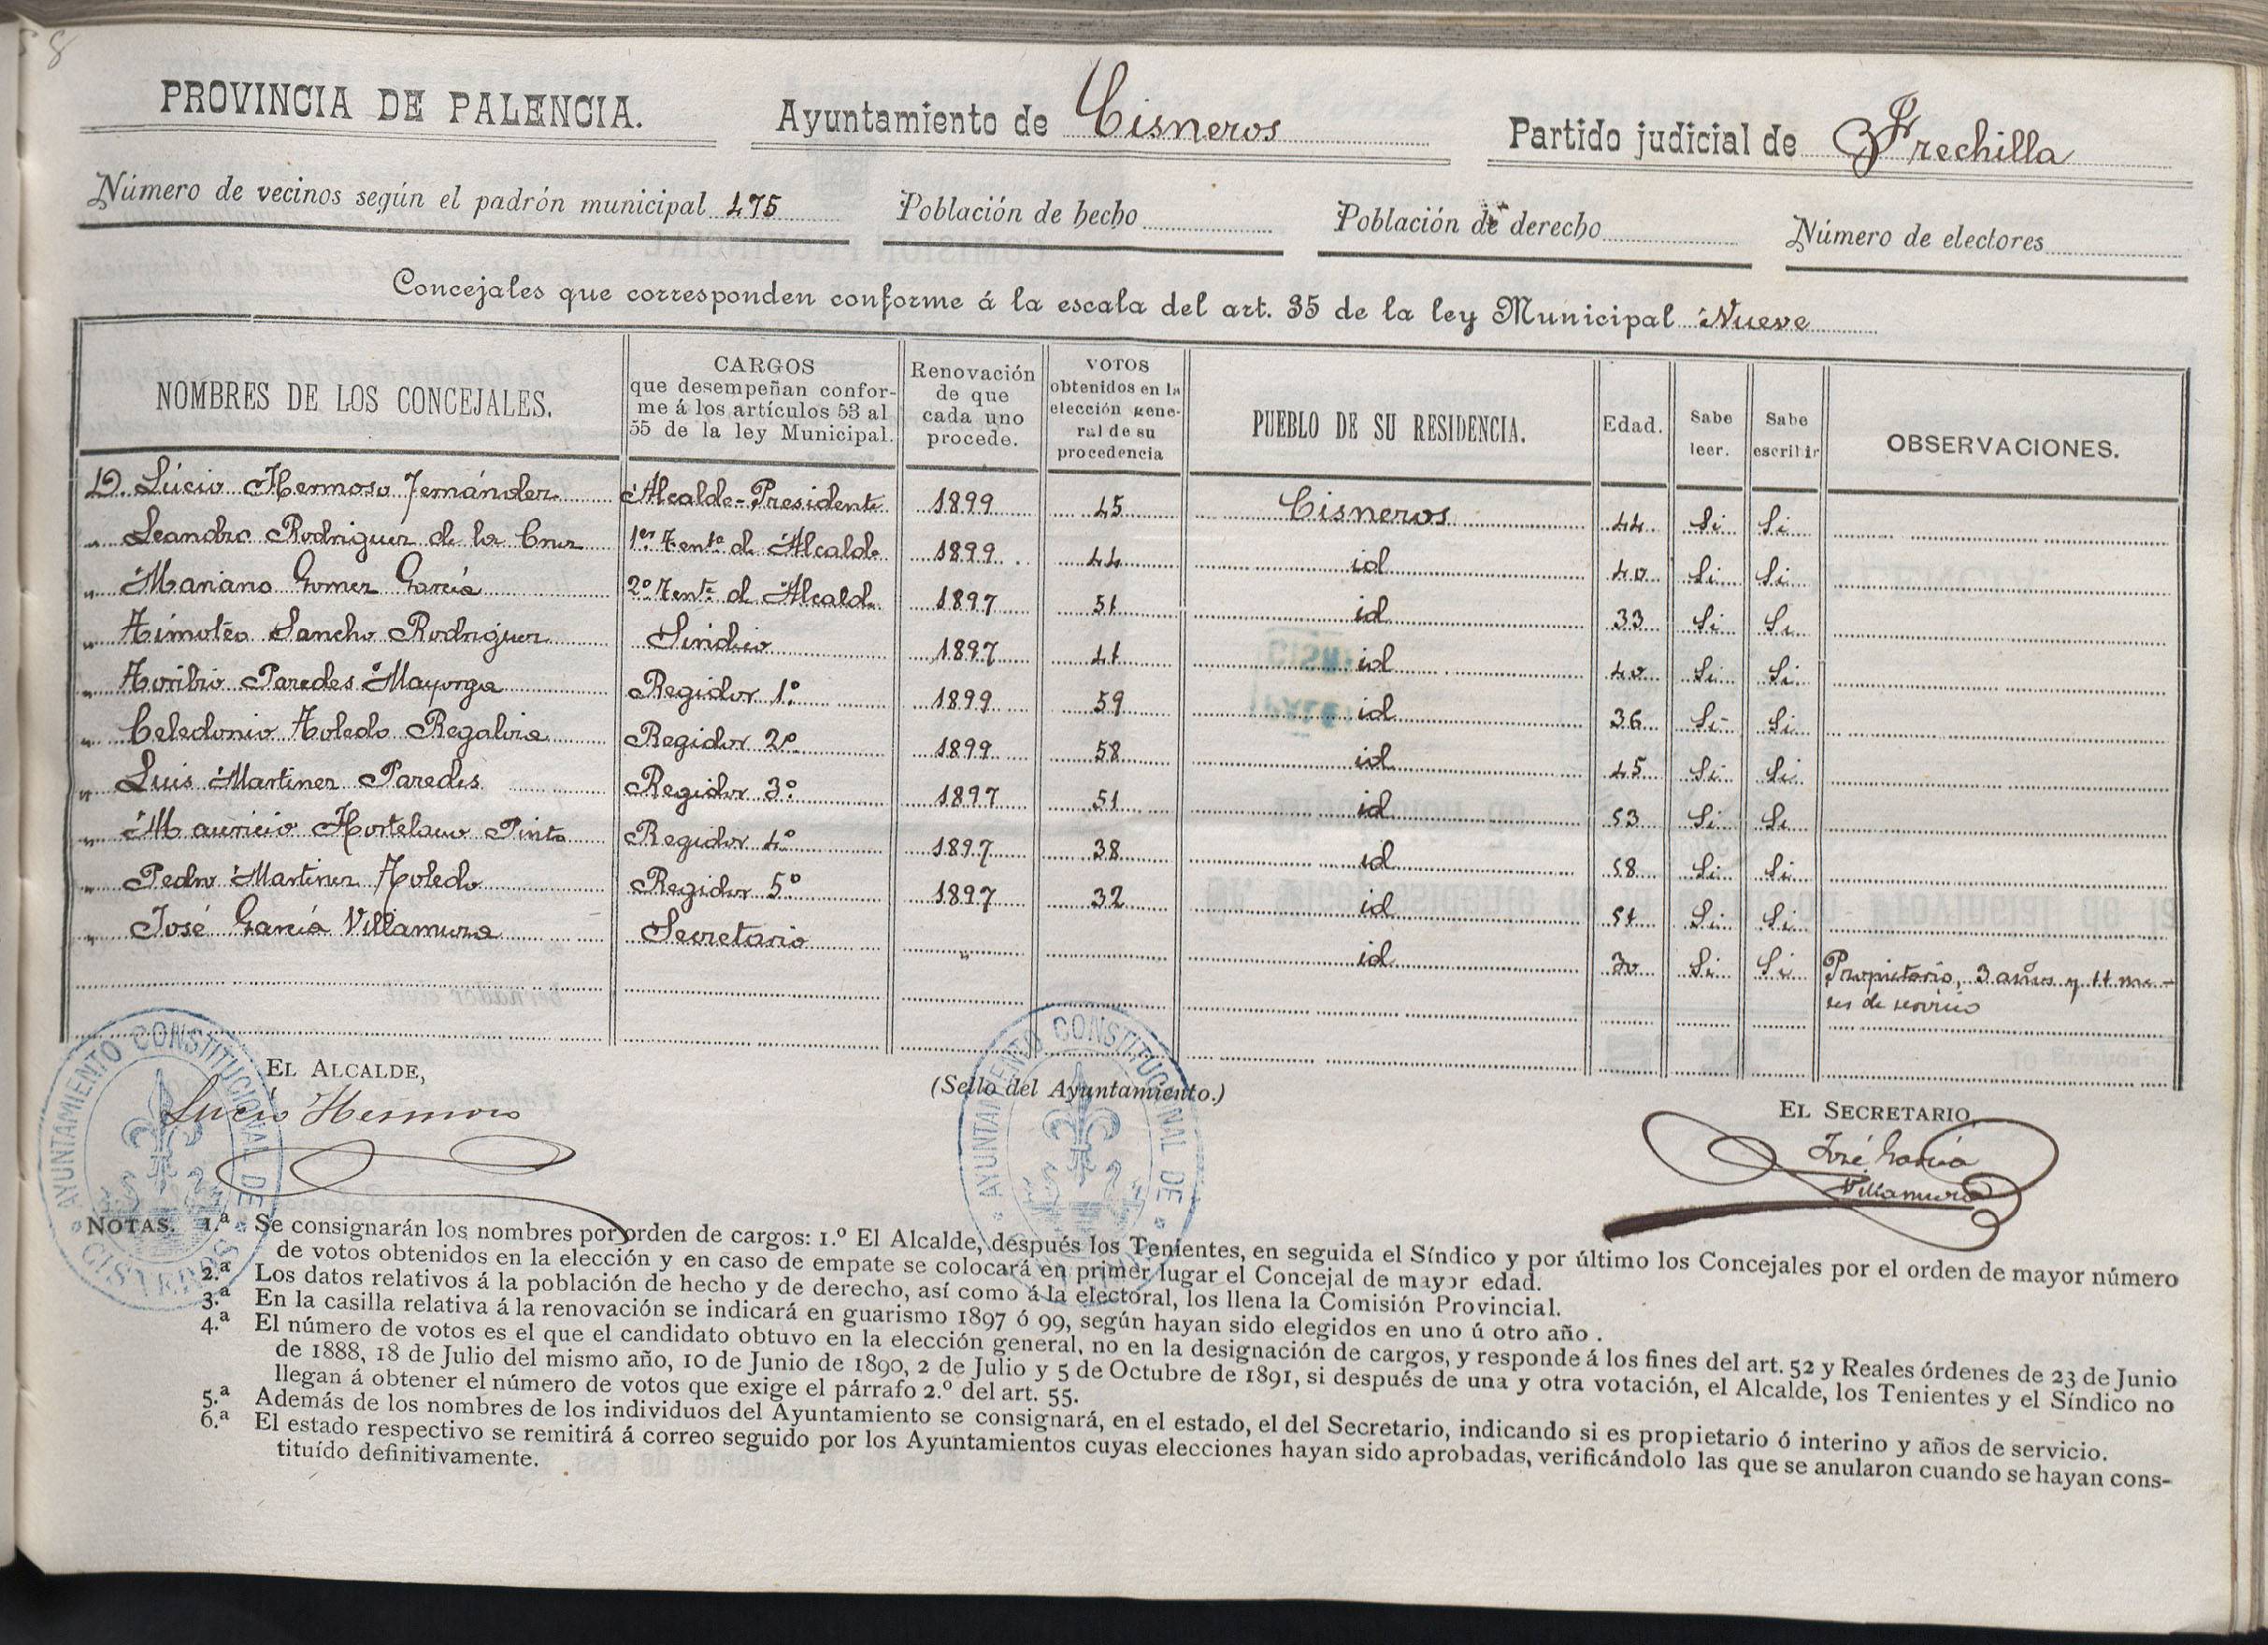 58
PROVINCIA DE PALENCIA. Ayuntamiento de Cisneros Partido judicial de Frechilla
Número de vecinos según el padrón municipal 475 Población de hecho Población de derecho Número de electores
Concejales que corresponden conforme á la escala del art. 35 de la ley Municipal Nueve
NOMBRES DE LOS CONCEJALES. CARGOS que desempeñan confor-me á los artículos 53 al 55 de la ley Municipal. Renovación de que cada uno procede. VOTOS obtenidos en la elección gene-ral de su procedencia PUEBLO DE SU RESIDENCIA. Edad. Sabe leer. Sabe escribir OBSERVACIONES.
D. Lúcio Hermoso Fernández Alcalde-Presidente 1899 45 Cisneros 44 Si Si
" Leandro Rodriguez de la Cruz 1er Tente de Alcalde 1899 44 id 40 Si Si
" Mariano Gomez García 2º Tente de Alcalde 1897 51 id 33 Si Si
" Timotéo Sancho Rodriguez Sindico 1897 41 id 40 Si Si
" Toribio Paredes Mayorga Regidor 1º 1899 59 id 36 Si Si
" Celedonio Toledo Regaliza Regidor 2º 1899 58 id 45 Si Si
" Luis Martinez Paredes Regidor 3º 1897 51 id 53 Si Si
" Mauricio Hortelano Pinto Regidor 4º 1897 38 id 58 Si Si
" Pedro Martinez Toledo Regidor 5º 1897 32 id 51 Si Si
" José García Villamuza Secretario " id 30 Si Si Propietario, 3 años y 11 me-
ses de servicio
EL ALCALDE, (Sello del Ayuntamiento.) EL SECRETARIO,
Lucio Hermoso José García
Villamuza
AYUNTAMIENTO CONSTITUCIONAL DE CISNEROS
AYUNTAMIENTO CONSTITUCIONAL DE
NOTAS. 1.ª Se consignarán los nombres por orden de cargos: 1.º El Alcalde, después los Tenientes, en seguida el Síndico y por último los Concejales por el orden de mayor número
de votos obtenidos en la elección y en caso de empate se colocará en primer lugar el Concejal de mayor edad.
2.ª Los datos relativos á la población de hecho y de derecho, así como á la electoral, los llena la Comisión Provincial.
3.ª En la casilla relativa á la renovación se indicará en guarismo 1897 ó 99, según hayan sido elegidos en uno ú otro año.
4.ª El número de votos es el que el candidato obtuvo en la elección general, no en la designación de cargos, y responde á los fines del art. 52 y Reales órdenes de 23 de Junio
de 1888, 18 de Julio del mismo año, 10 de Junio de 1890, 2 de Julio y 5 de Octubre de 1891, si después de una y otra votación, el Alcalde, los Tenientes y el Síndico no
llegan á obtener el número de votos que exige el párrafo 2.º del art. 55.
5.ª Además de los nombres de los individuos del Ayuntamiento se consignará, en el estado, el del Secretario, indicando si es propietario ó interino y años de servicio.
6.ª El estado respectivo se remitirá á correo seguido por los Ayuntamientos cuyas elecciones hayan sido aprobadas, verificándolo las que se anularon cuando se hayan cons-
tituído definitivamente.